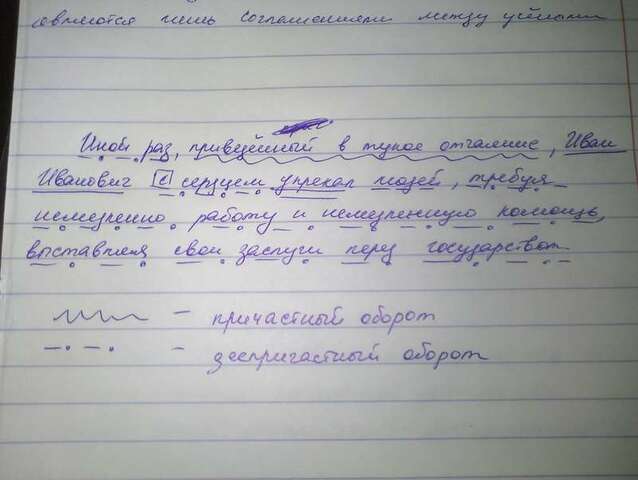 являются лишь соглашениями между учёными
Иной раз, приведённый в тупое отчаяние, Иван
Иванович с сердцем упрекал людей, требуя
немедленно работу и немедленную помощь,
выставляя свои заслуги перед государством
— причастный оборот
— деепричастный оборот